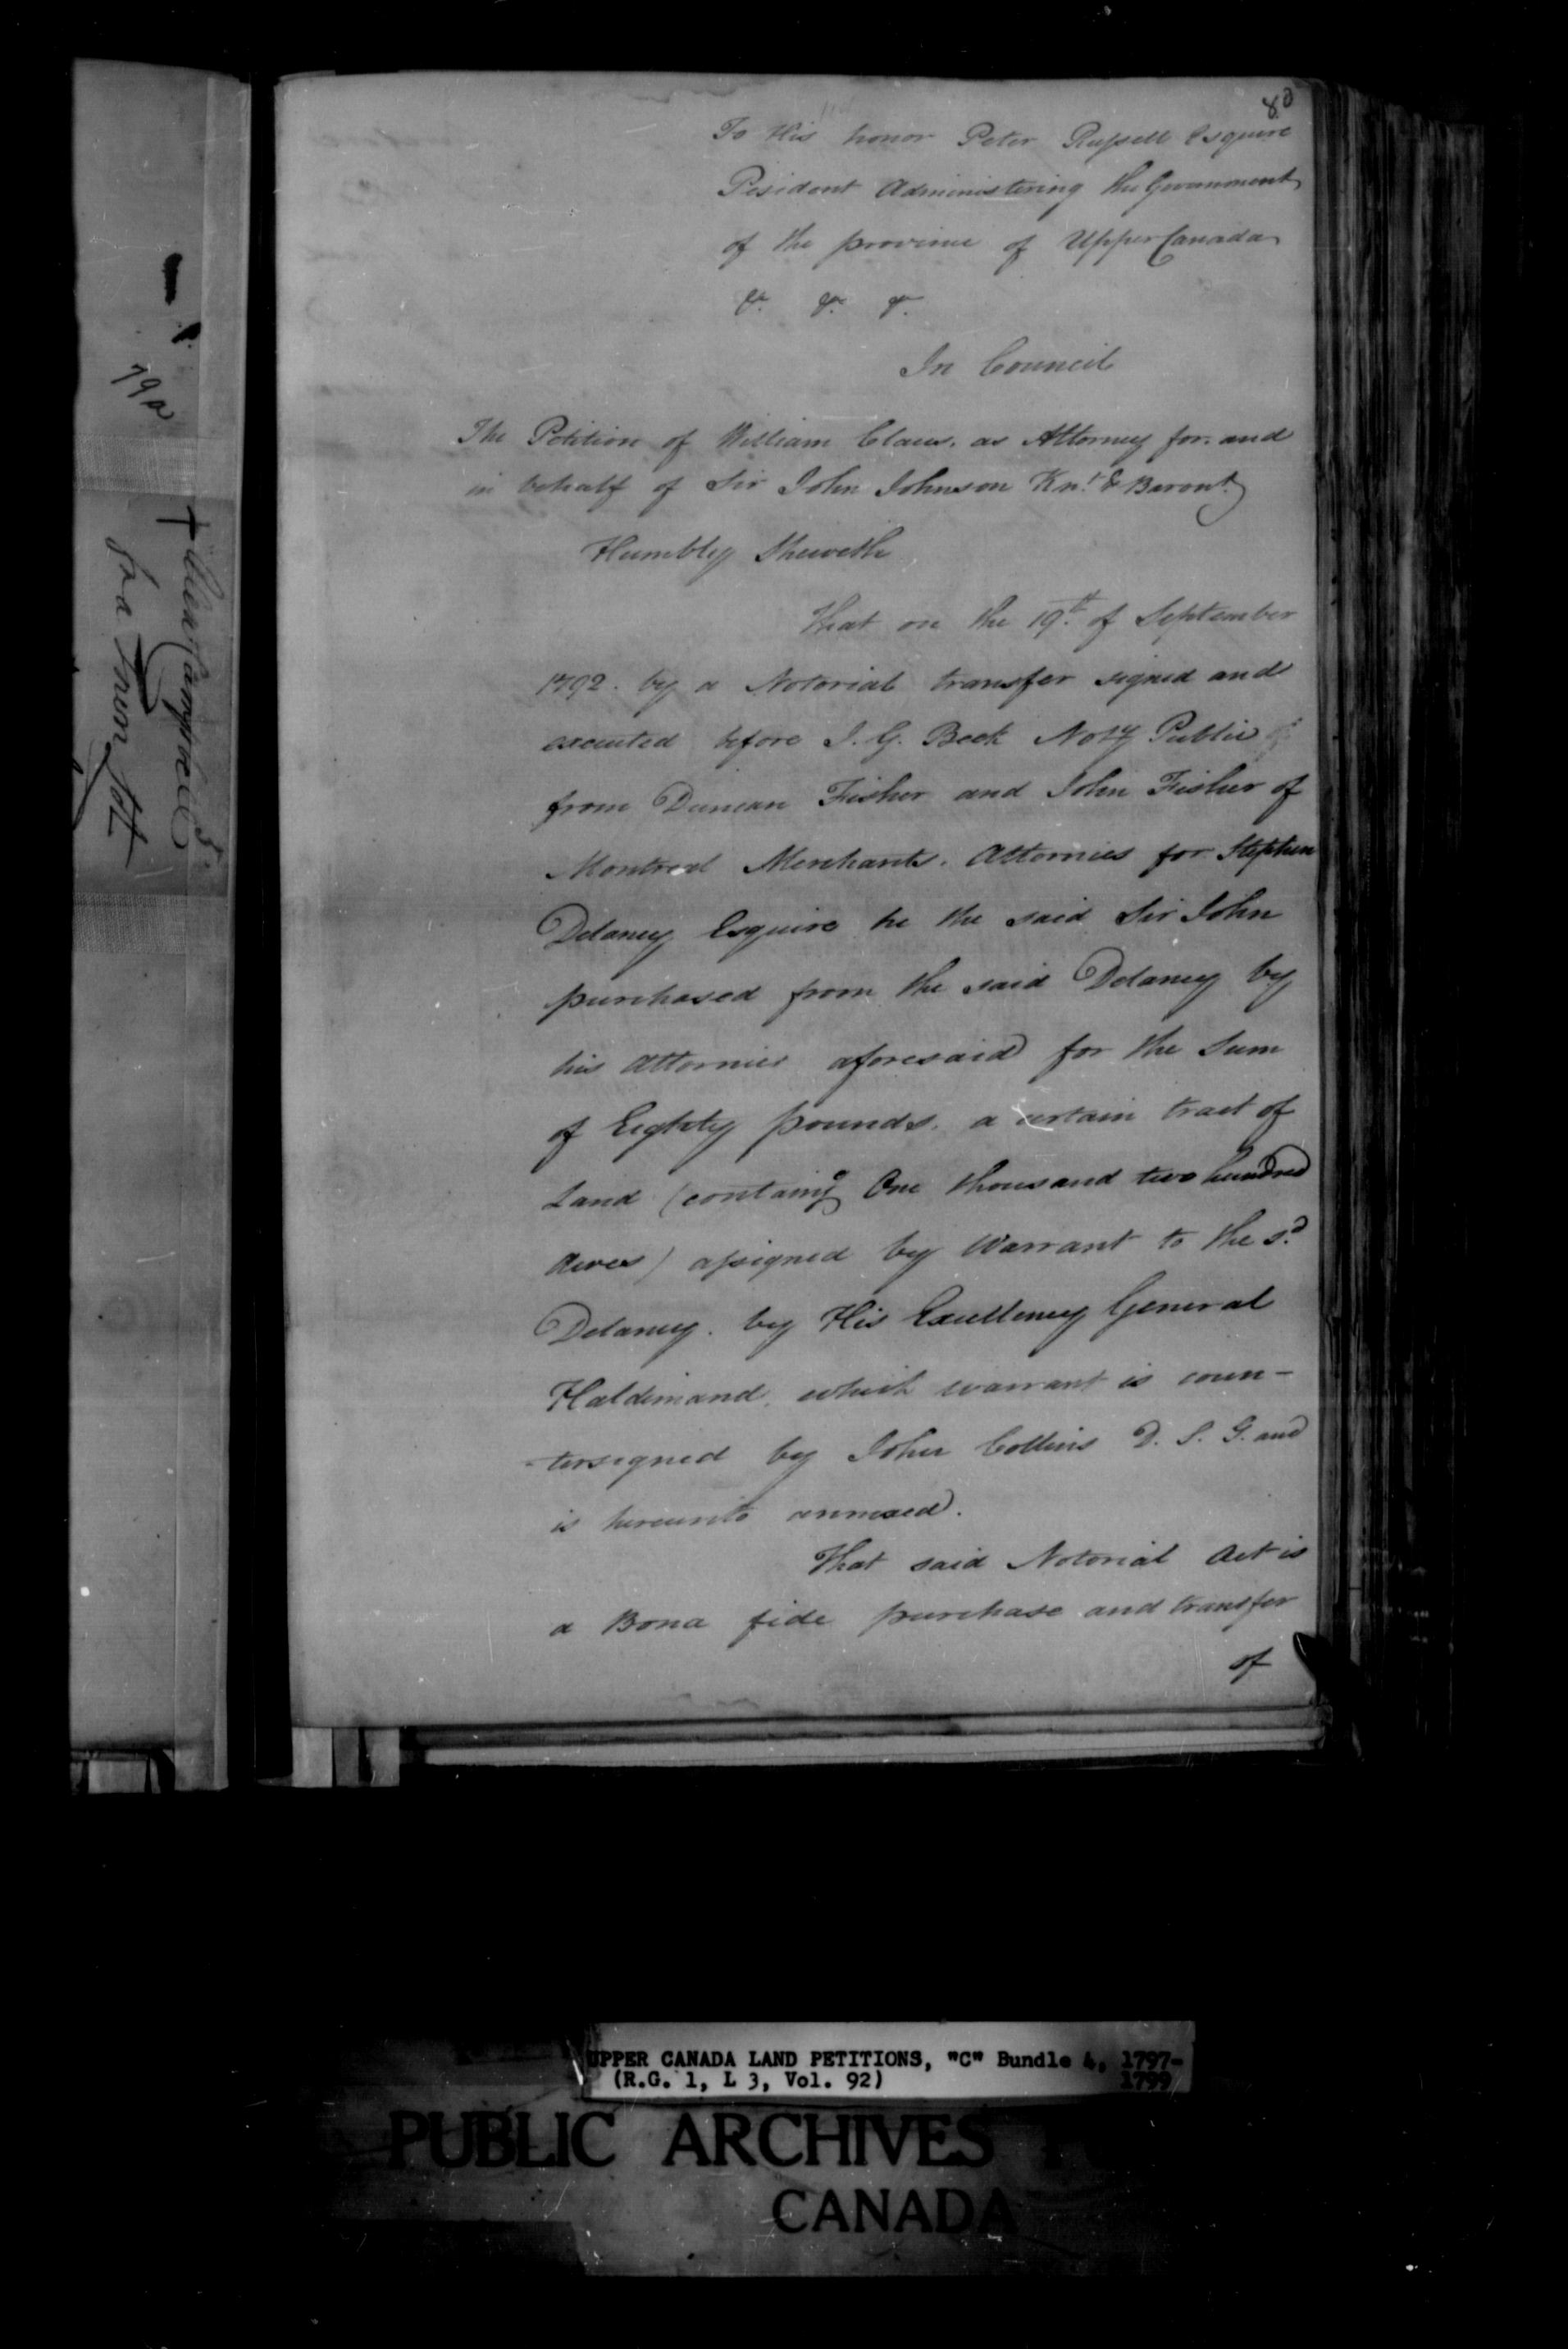 80
To His honor Peter Russell Esquire
Pesident Administering the Government
of the province of Upper Canada
&c. &c. &c.
In Council
The Petition of William Claus, as Attorney for and
in behalf of Sir John Johnson Knt. & Baront.
Humbly Sheweth
That on the 19th of September
1792. by a Notorial transfer signed and
executed before J. G. Beek Noty Public
from Duncan Fisher and John Fisher of
Montreal Merchants. Attornies for Stephen
Delancy Esquire he the said Sir John
purchased from the said Delancy by
his attornies aforesaid for the Sum
of Eighty pounds. a certain tract of
Land (containg One thousand two hundred
Acres) assigned by Warrant to the sd.
Delancy. by His Excellency General
Haldimand, which warrant is coun-
-tersigned by John Collins D. S. G. and
is hereunto annexed.
That said Notorial Act is
a Bona fide purchase and transfer
of
79a
UPPER CANADA LAND PETITIONS, "C" Bundle 4, 1797-
(R.G. 1, L 3, Vol. 92) 1799
PUBLIC ARCHIVES
CANADA